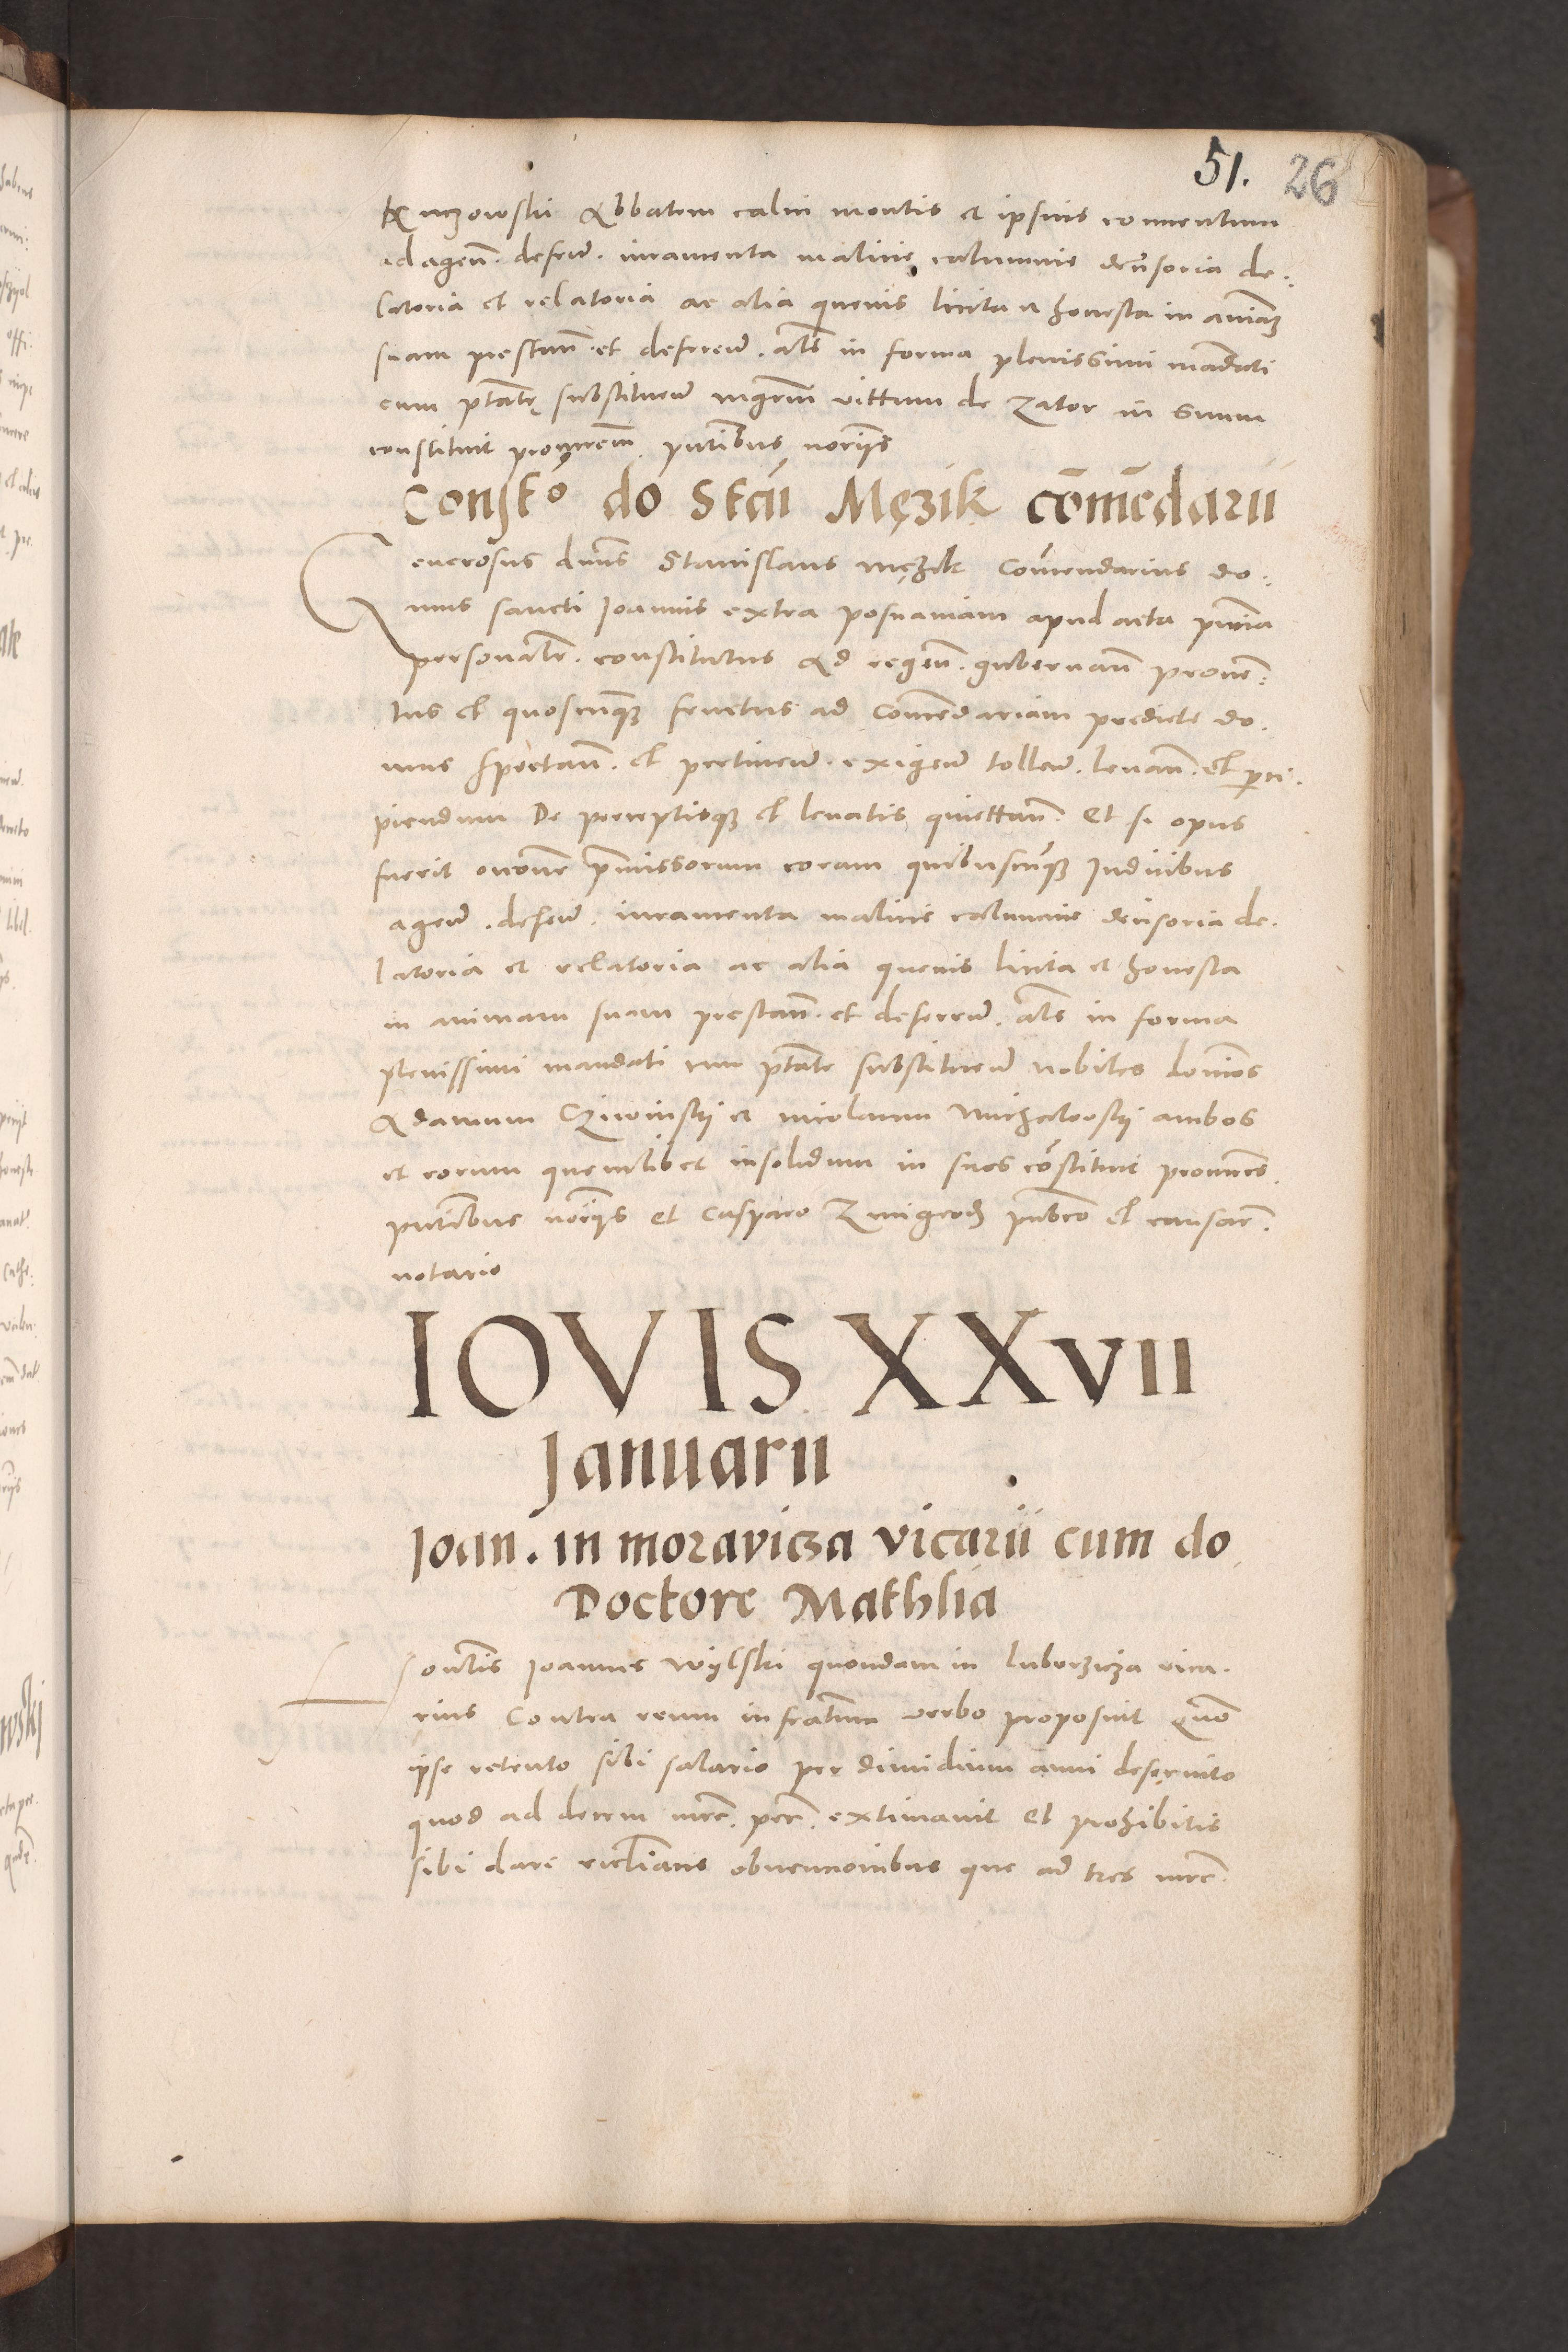 51. 26
Kuczowski Abbatem calvi montis et ipsius conventum
ad agen̄. defen̄. iuramenta malicie calumnie decisoria de:
latoria et relatoria ac alia quevis licita et honesta in aīam
suam prestan̄. et deferen̄. al̄s in forma plenissimi mādati
cum ptāte substituen̄ mgrm̄ vittum de Zator in suum
constituit procurem̄ pn̄tibus notr̄iis
Const̄o do Stāi Męzik com̄ēdarii
Generosus dn̄us Stanislaus Męzik Com̄endarius do:
mus sancti Joannis extra posnaniam apud acta pn̄tia
personalr̄. constitutus Ad regen̄. gubernan̄ proven:
tus et quoscunqꝫ fructus ad Com̄endariam predicte do.
mus spectan̄. et pertinen̄. exigen̄ tollen̄. levan̄. et p̄ci.
piendum De perceptisqꝫ et levatis quiettan̄. Et si opus
fuerit occōne p̄missorum coram quibuscunqꝫ Iudicibus
agen̄. defen̄. iuramenta malicie calumnie decisoria de.
latoria et relatoria ac alia quevis licita et honesta
in animam suam prestan̄. et deferen̄. al̄s in forma
plenissimi mandati cum ptāte substituen̄ nobiles domīos
Adamum et nicolaum ambos
et eorum quemlibet insolidum in suos cōstituit procures.
pn̄tibus notr̄iis et Casparo Zmigrod pub̄co et causar̄.
notario
IOVIS XXVII
Januarii
Joan. in moravicza vicarii cum do
Doctore Mathia
Honor̄lis Joannes Wylski quondam in luborzicza vica.
rius Contra reum infrat̄um verbo proposuit Quō
ipse retento sibi salario per dimidium anni deservito
quod ad decem mrc̄. pec̄. extimavit et prohibitis
sibi dari victlībus obvencionibus que ad tres mrc̄.